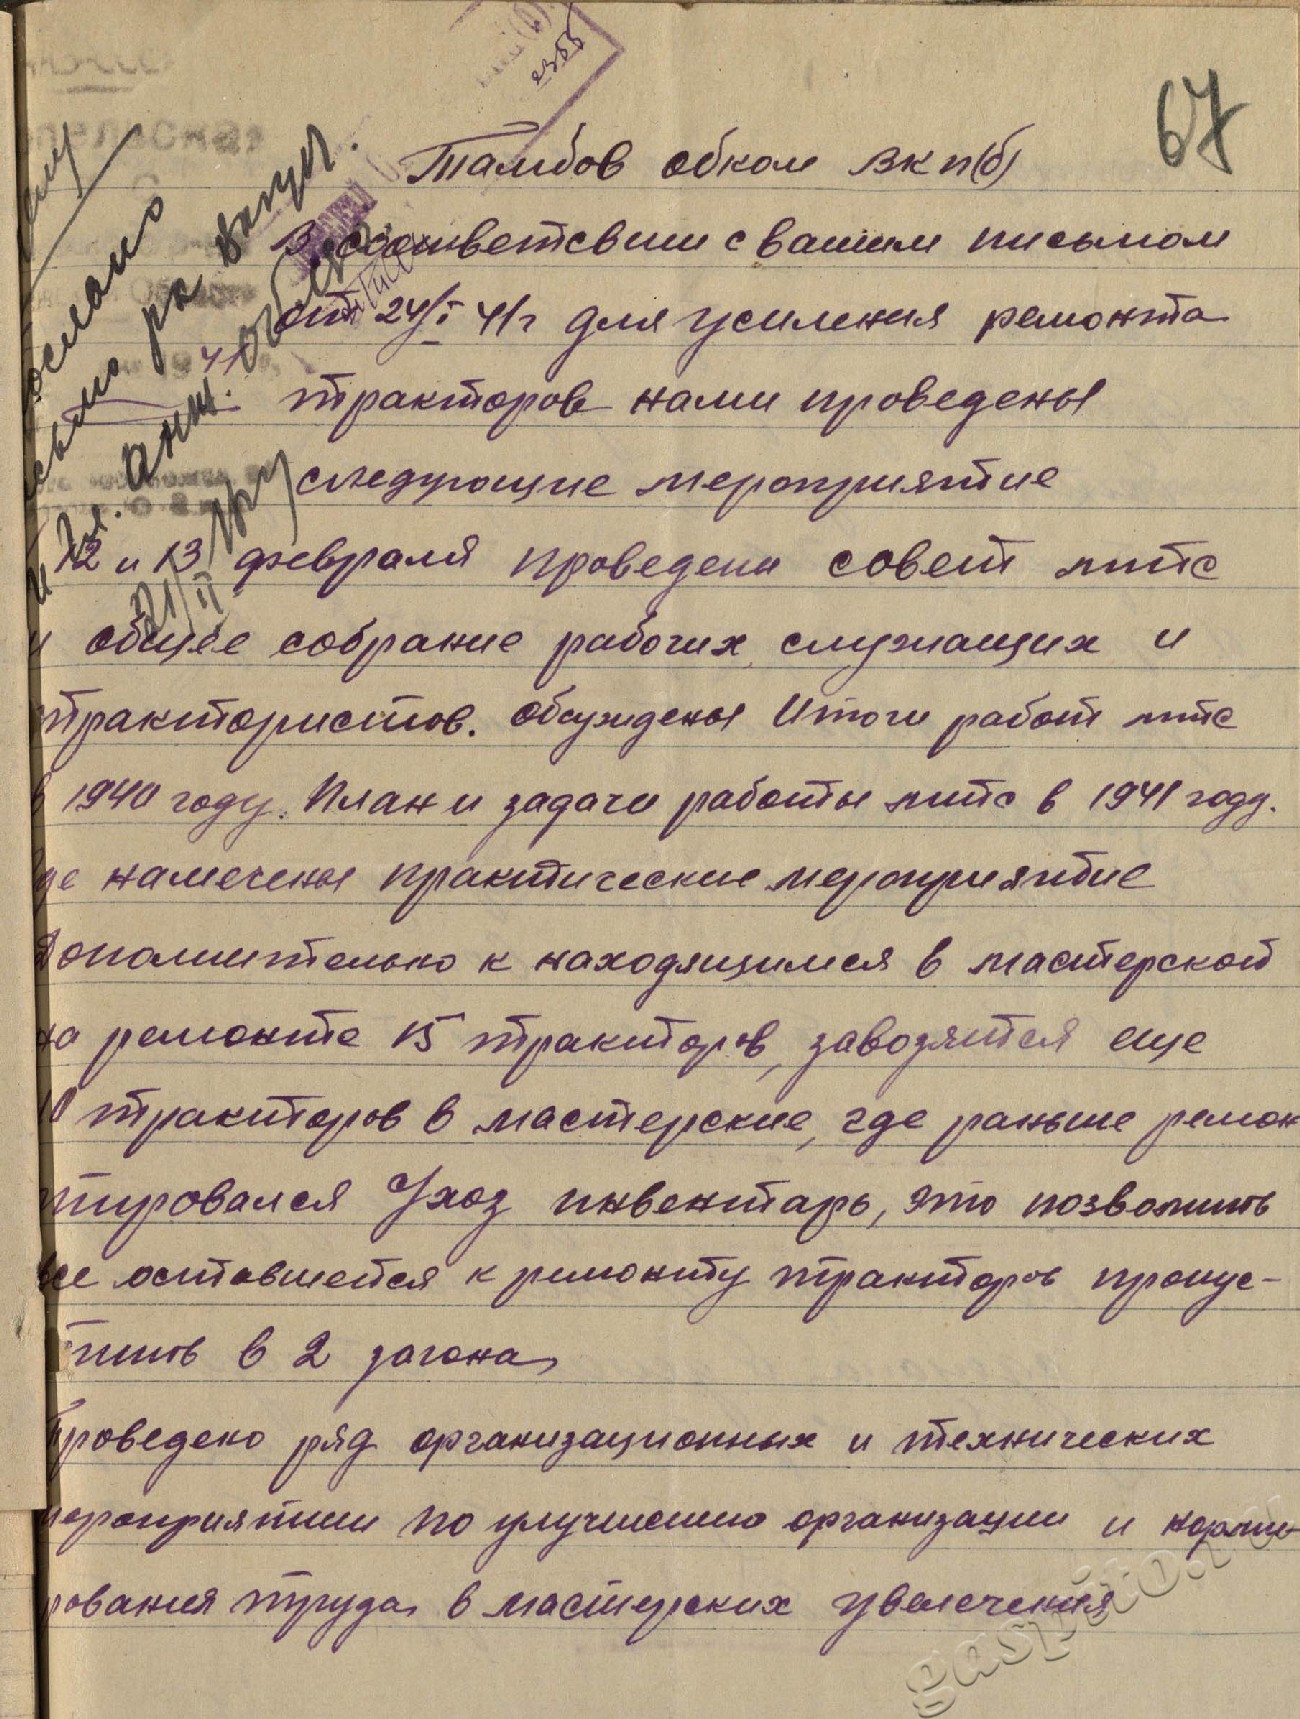 67
Тамбов обком ВКП(б)
В соответсвии с вашим письмом
от 24/I 41г для усиления ремонта
тракторов нами проведены
следующие мероприятие
12 и 13 февраля проведены совет мтс
и общее собрание рабочих, служащих и
трактористов. обсуждены Итоги работ мтс
в 1940 году. План и задачи работы мтс в 1941 году.
где намечены практические мероприятие
Дополнительно к находящимся в мастерской
на ремонте 15 тракторов, заводятся еще
10 тракторов в мастерские, где раньше ремон
тировался Ухоз инвентарь, это позволить
все оставшется к ремонту тракторов пропус-
тить в 2 загона,
Проведено ряд организационных и технических
мероприятии по улучшению организации и норми-
рования труда, в мастерских увелечения
gaspito.ru